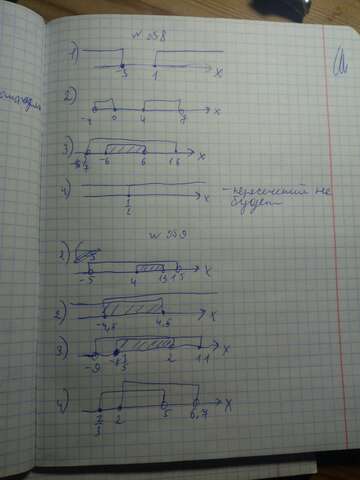 № 358
1)
-3 1 x
2)
-1 0 4 7 x
3)
-6 6 11 x
4)
1/2 x
- пересечений не
будет
№ 359
1)
-5 4 13 15 x
2)
-4,8 4,6 x
3)
-9 2 11 x
4)
2/3 2 5 6,7 x